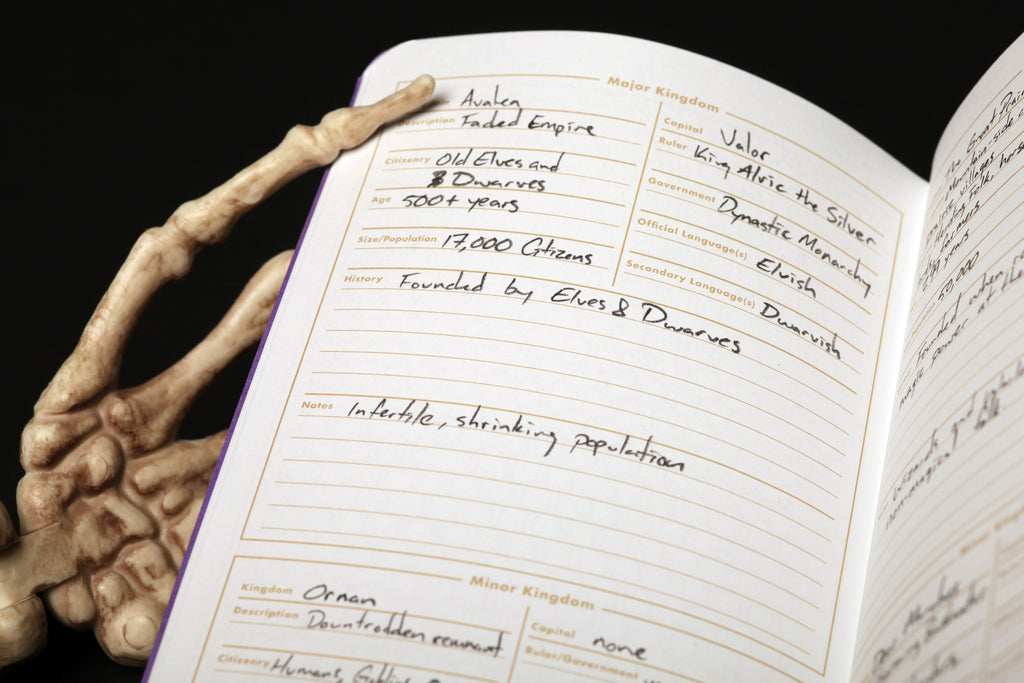 Major Kingdom
Avalen
Description Faded Empire
Citizenry Old Elves and
& Dwarves
Age 500+ years
Size/Population 17,000 Citizens
Capital Valor
Ruler King Alric the Silver
Government Dynastic Monarchy
Official Language(s) Elvish
Secondary Language(s) Dwarvish
History Founded by Elves & Dwarves
Notes Infertile, shrinking population
Minor Kingdom
Kingdom Ornan
Description Downtrodden remnant
Citizenry Humans, Goblins
Capital none
Ruler/Government
The Great
mountain-side
villages
folk, horse
farmers
500 years
50,000
Founded when
magic power at the
Wizards and
folk
non-magical
Minor